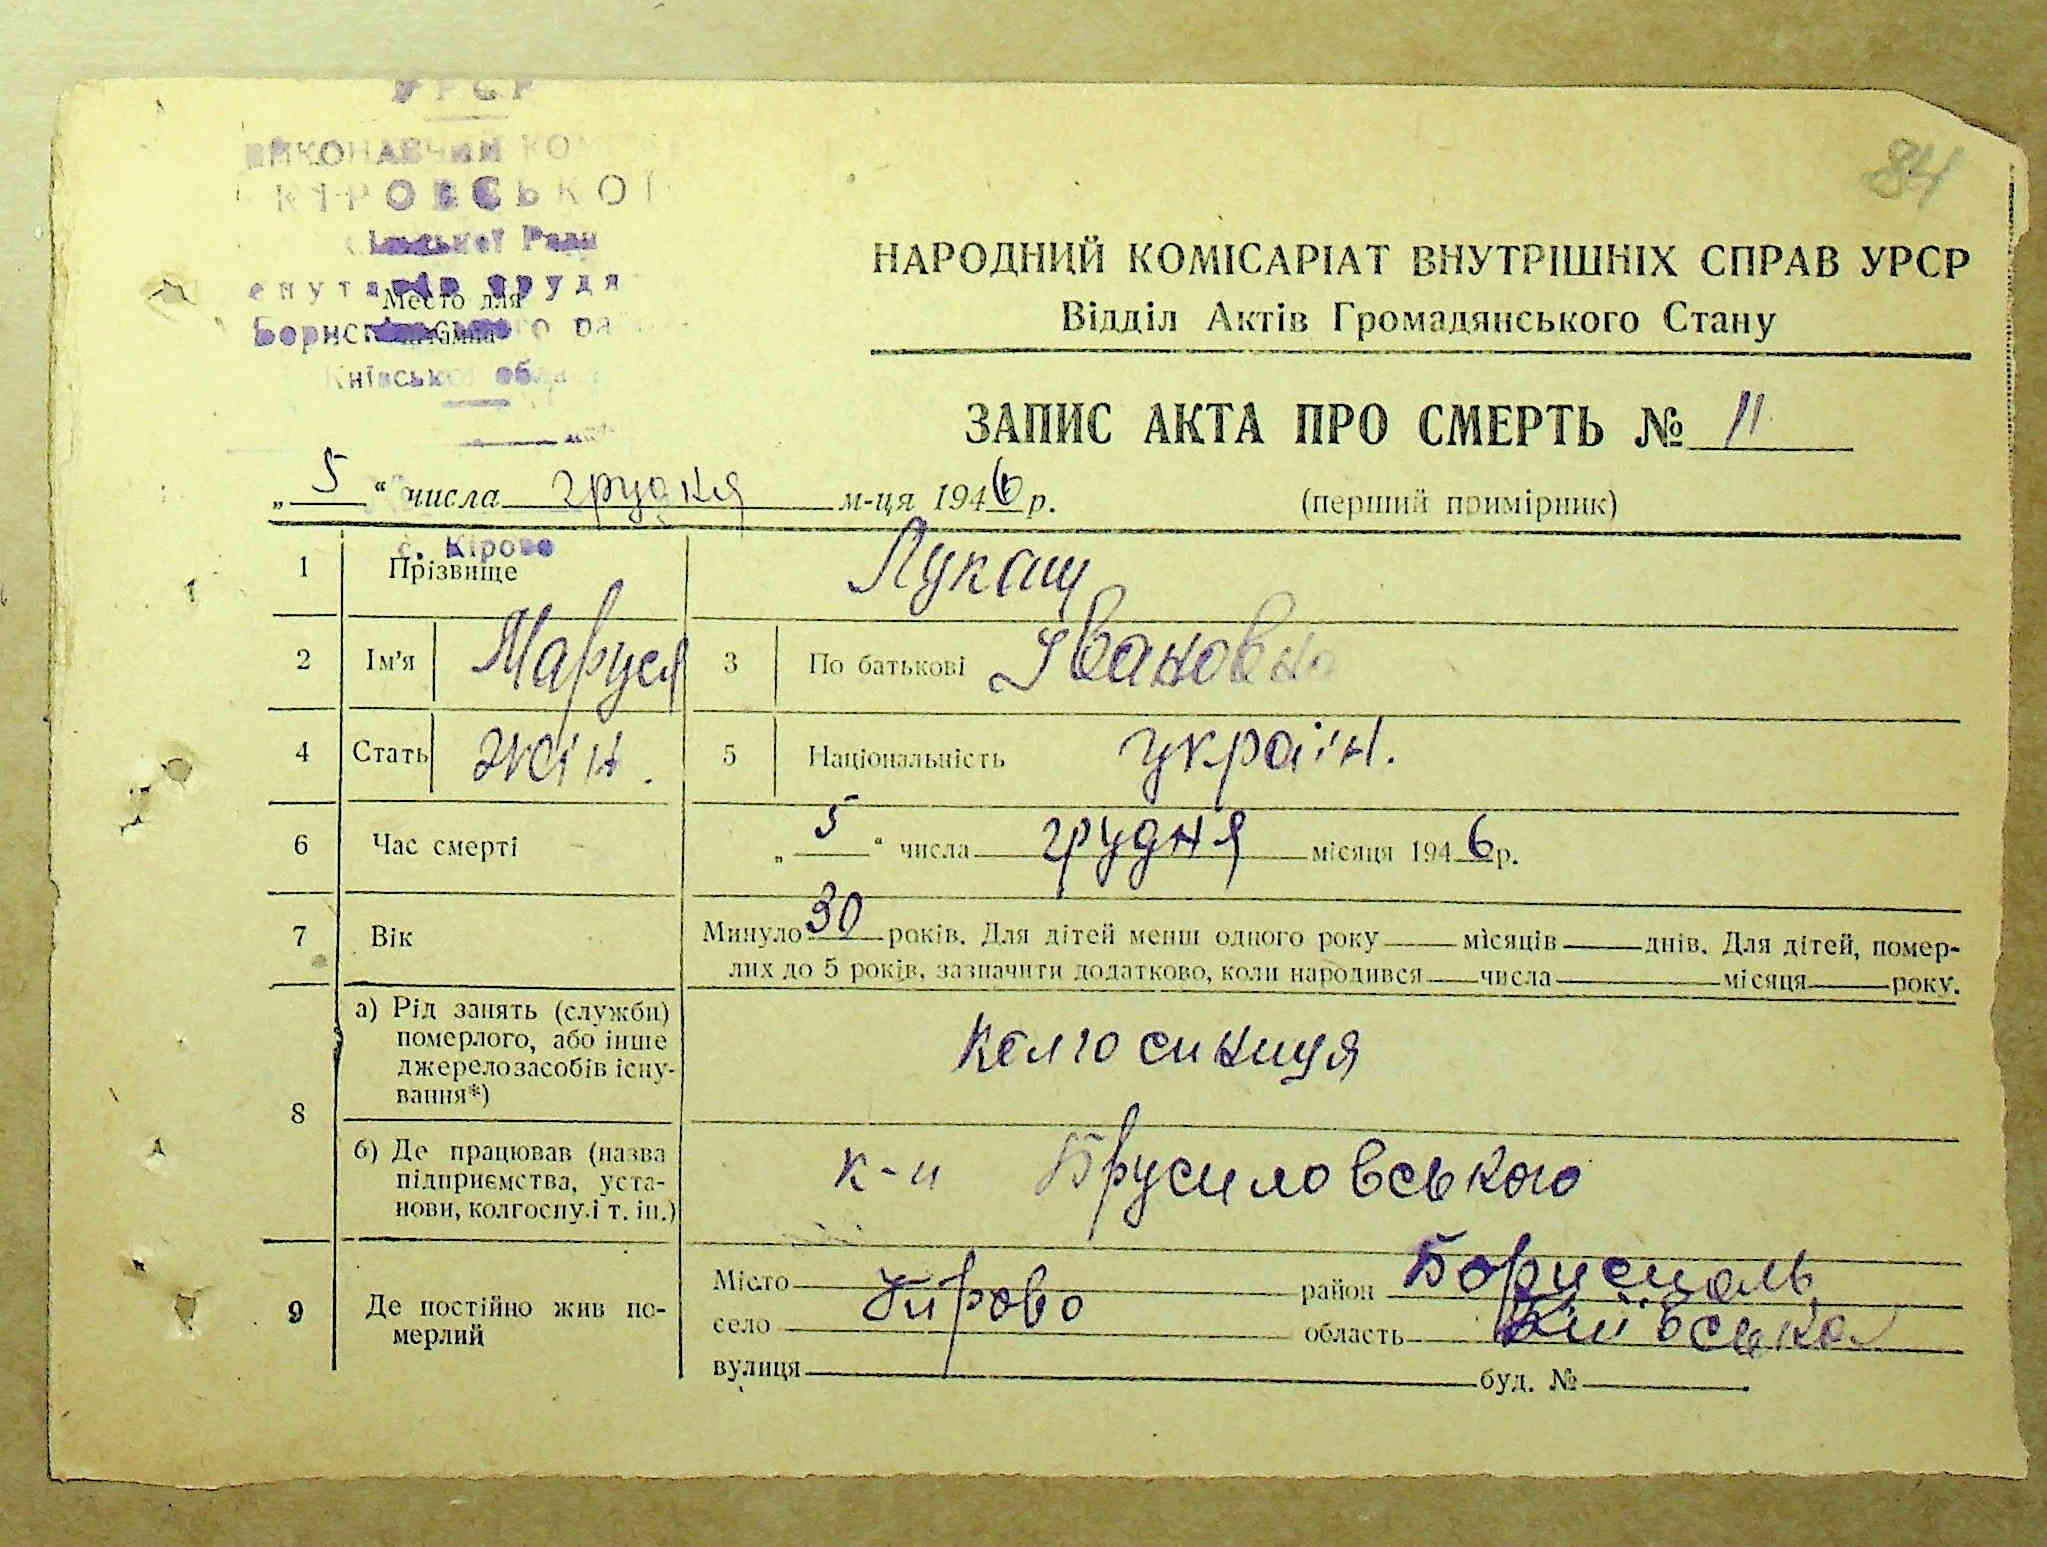 УРСР
ВИКОНАВЧИЙ КОМ
КІРОВСЬКОЇ
Сільської Ради
енутатів трудя
Место для
штампа
Бориспільського ра
Київської обла
84
НАРОДНИЙ КОМІСАРІАТ ВНУТРІШНІХ СПРАВ УРСР
Відділ Актів Громадянського Стану
ЗАПИС АКТА ПРО СМЕРТЬ № 11
„ 5 “ числа грудня м-ця 1946 р.
(перший примірник)
с. Кірово
1 Прізвище Лукаш
2 Ім'я Маруся 3 По батькові Івановна
4 Стать жін. 5 Національність україн.
6 Час смерті „ 5 “ числа грудня місяця 1946 р.
7 Вік Минуло 30 років. Для дітей менш одного року місяців днів. Для дітей, помер-
лих до 5 років, зазначити додатково, коли народився числа місяця року.
8 а) Рід занять (служби)
померлого, або інше
джерело засобів існу-
вання*)
колгоспниця
б) Де працював (назва
підприємства, уста-
нови, колгоспу і т. ін.)
к-п Брусиловського
9 Де постійно жив по-
мерлий
Місто район Бориспіль
село Кірово область Київська
вулиця буд. №